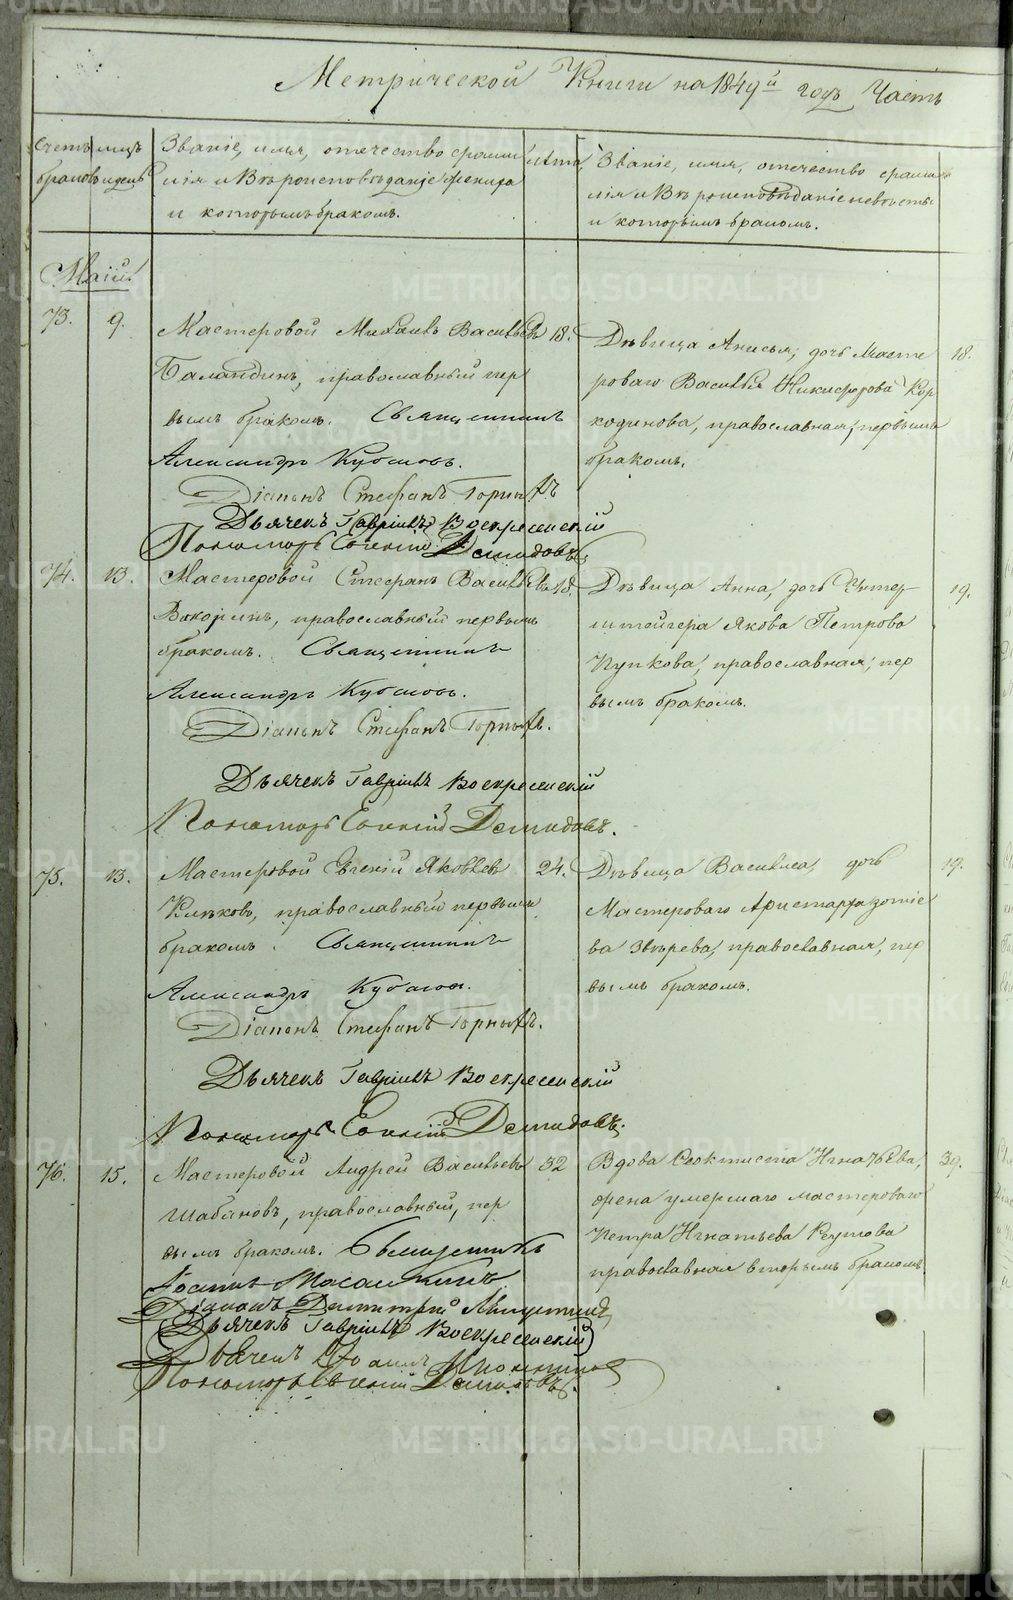 Метрической Книги на 1849й годъ Часть
Счетъ браковъ
мцъ и день
Званіе, имя, отечество, фами
лія и Вѣроисповѣданіе жениха
и которымъ бракомъ.
лѣта
Званіе, имя, отечество, фами
лія и Вѣроисповѣданіе невѣсты
и которымъ бракомъ.
Маій.
73. 9. Мастеровой Михаилъ Васильевъ 18.
Баландинъ, православный пер
вымъ бракомъ. Священникъ
Александръ Кубасовъ.
Діаконъ Стефанъ Горныхъ
Дьячекъ Гавріилъ Воскресенскій
Пономарь Евгеній Демидовъ
Дѣвица Анисья, дочь Масте 18.
роваго Василья Никифорова Кор
кодинова, православная, первымъ
бракомъ.
74. 13. Мастеровой Стефанъ Васильевъ 18.
православный первымъ
бракомъ. Священникъ
Александръ Кубасовъ.
Діаконъ Стефанъ Горныхъ.
Дьячекъ Гавріилъ Воскресенскій
Пономарь Евгеній Демидовъ.
Дѣвица Анна, дочь Унтер 19.
штейгера Якова Петрова
Пупкова, православная, пер
вымъ бракомъ.
75. 13. Мастеровой Евгеній Яковлевъ 24.
православный первымъ
бракомъ. Священникъ
Александръ Кубасовъ.
Діаконъ Стефанъ Горныхъ.
Дьячекъ Гавріилъ Воскресенскій
Пономарь Евгеній Демидовъ.
Дѣвица Василиса, дочь 19.
Мастероваго Аристарха Зотіе
ва Звѣрева, православная, пер
вымъ бракомъ.
76. 15. Мастеровой Андрей Васильевъ 32
Шабановъ, православный, пер
вымъ бракомъ. Священникъ
Іоаннъ
Діаконъ Димитрій
Дьячекъ Гавріилъ Воскресенскій
Дьячекъ Іоаннъ
Пономарь Евгеній Демидовъ.
Вдова Феоктиста Игнатьева, 39.
жена умершаго мастероваго
Петра Игнатьева
православная вторымъ бракомъ
METRIKI.GASO-URAL.RU